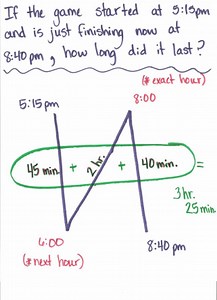 If the game started at 5:15pm
and is just finishing now at
8:40pm, how long did it last?
(* exact hour)
5:15pm
8:00
45 min. + 2 hr. + 40 min. =
3 hr.
25 min.
6:00
(* next hour)
8:40pm